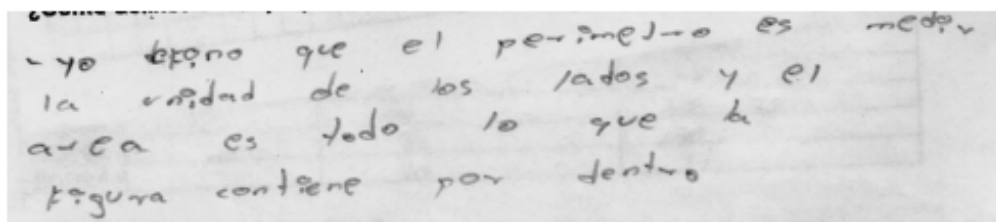 - yo defino que el perimetro es medir
la unidad de los lados y el
area es todo lo que la
figura contiene por dentro